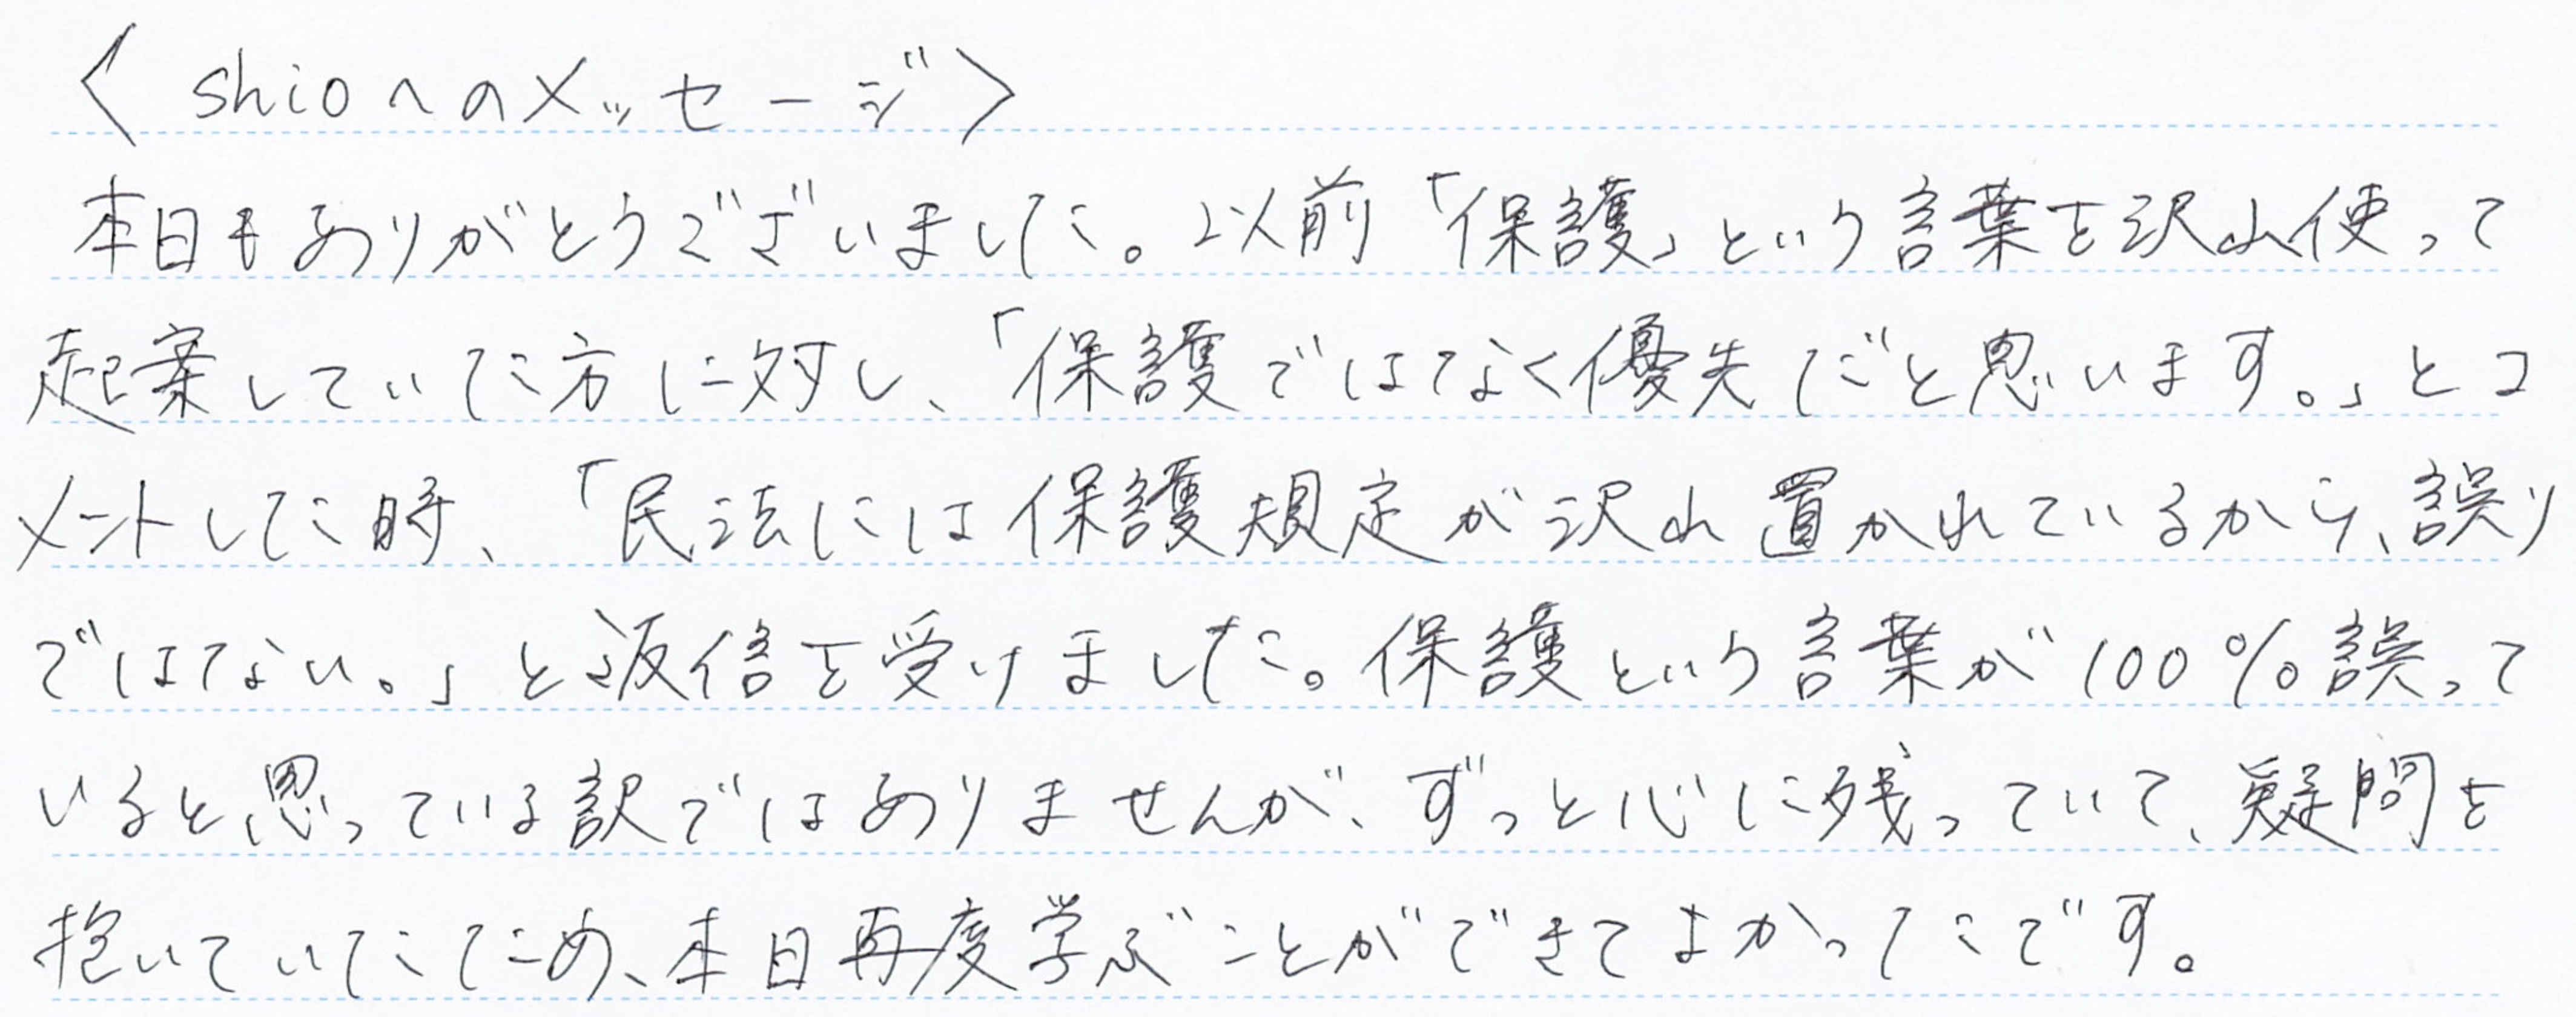 〈 shioへのメッセージ〉
本日もありがとうございました。以前「保護」という言葉を沢山使って
起案していた方に対し、「保護ではなく優先だと思います。」とコ
メントした時、「民法には保護規定が沢山置かれているから、誤り
ではない。」と返信を受けました。保護という言葉が100%誤って
いると思っている訳ではありませんが、ずっと心に残っていて、疑問を
抱いていたため、本日再度学ぶことができてよかったです。